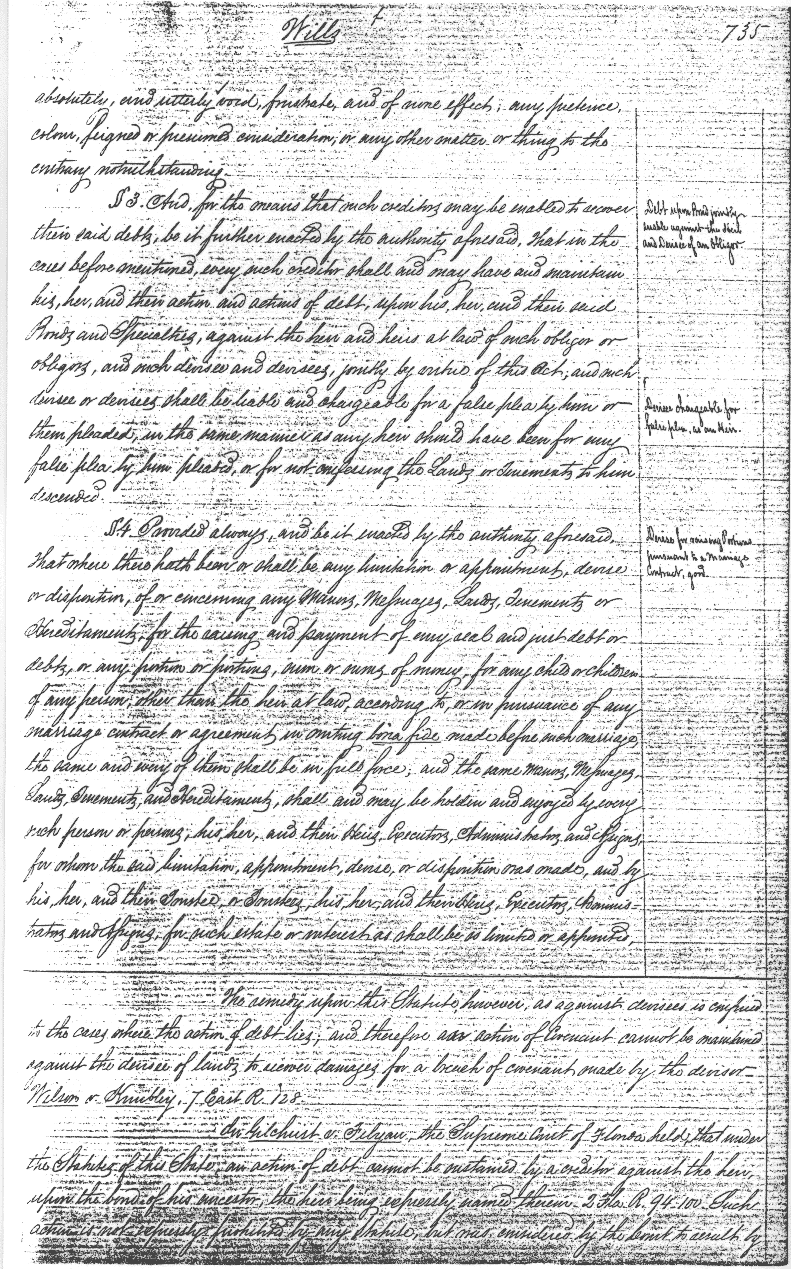 Wills
735
absolutely, and utterly void, frustrate, and of none effect; any pretence,
colour, feigned or presumed consideration, or any other matter or thing to the
contrary notwithstanding.
§ 3. And, for the means that such creditors may be enabled to recover
their said debts, be it further enacted by the authority aforesaid, That in the
cases before mentioned, every such creditor shall and may have and maintain
his, her, and their action and actions of debt, upon his, her, and their said
Bonds and Specialties, against the heir and heirs at law of such obligor or
obligors, and such devisee and devisees, jointly by virtue of this Act; and such
devisee or devisees shall be liable and chargeable for a false plea by him or
them pleaded, in the same manner as any heir should have been for any
false plea by him pleaded, or for not confessing the Lands or Tenements to him
descended.
Debt upon Bond jointly
against the Heir
and Devisee of an Obligor
Devisee chargeable for
false plea, as an Heir.
§ 4. Provided always, and be it enacted by the authority aforesaid,
That where there hath been or shall be any limitation or appointment, devise
or disposition, of or concerning any Manors, Messuages, Lands, Tenements or
Hereditaments, for the raising and payment of any real and just debt or
debts, or any portion or portions, sum or sums of money, for any child or children
of any person, other than the heir at law, according to, or in pursuance of any
marriage contract or agreement in writing bona fide made before such marriage,
the same and every of them shall be in full force; and the same Manors, Messuages,
Lands, Tenements, and Hereditaments, shall and may be holden and enjoyed by every
such person or persons, his, her, and their Heirs, Executors, Administrators and Assigns,
for whom the said limitation, appointment, devise, or disposition was made, and by
his, her, and their Trustee, or Trustees, his, her, and their Heirs, Executors, Adminis-
trators and Assigns, for such estate or interest as shall be so limited or appointed,
Devise for raising Portions
pursuant to a Marriage
Contract, good.
The remedy upon this Statute, however, as against devisees is confined
to the cases where the action of debt lies; and therefore an action of Covenant cannot be maintained
against the devisee of lands to recover damages for a breach of covenant made by the devisor
Wilson v. Knubley, 7 East R. 128
In Gilchrist v. Filyau, the Supreme Court of Florida held, that under
the Statutes of this State, an action of debt cannot be sustained by a creditor against the heir,
upon the bond of his ancestor, the heir being expressly named therein. 2 Fla. R. 94-100. Such
action is not expressly prohibited by any Statute, but was considered by the Court to result by